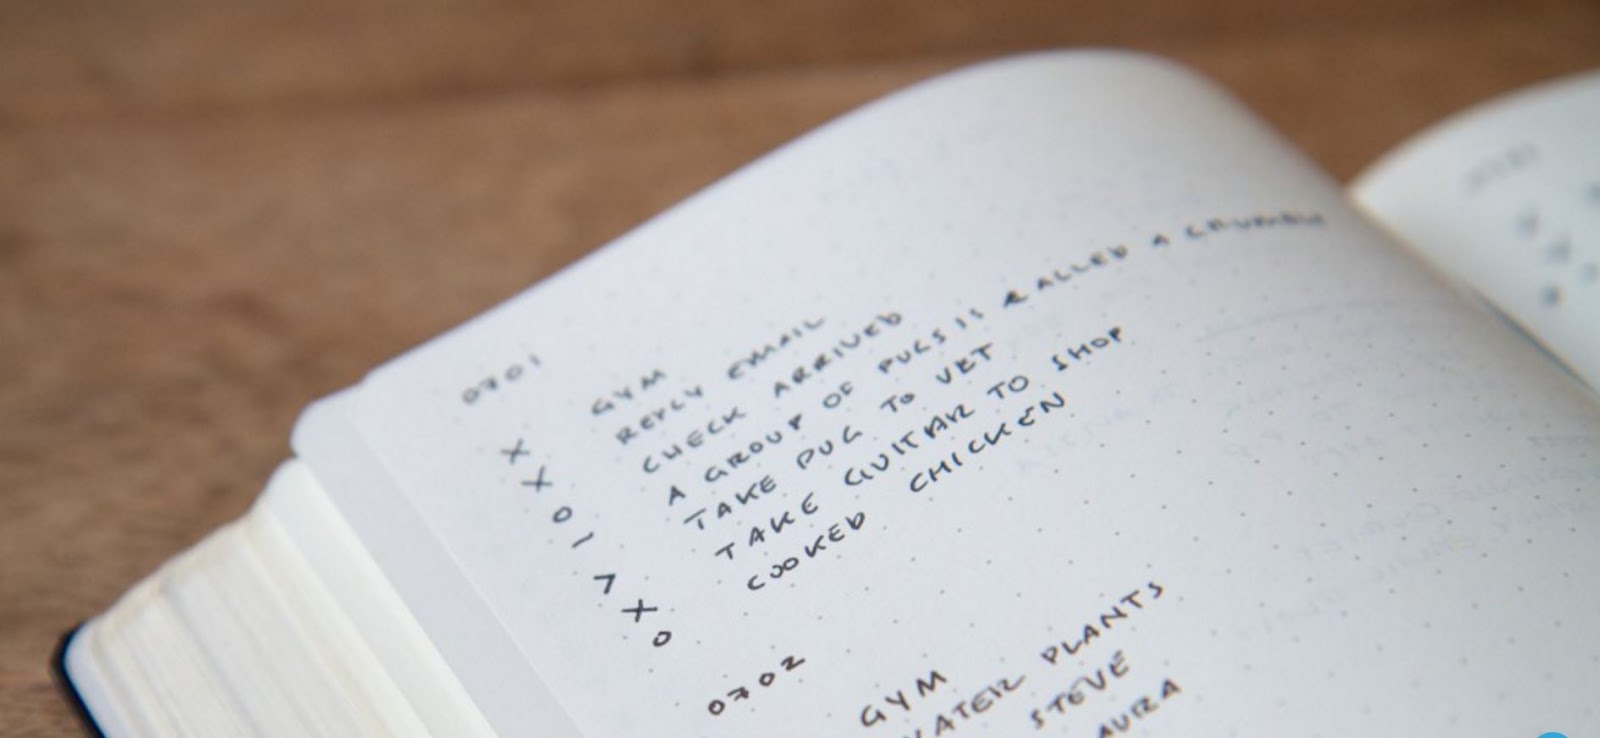 0701
X GYM
X REPLY EMAIL
O CHECK ARRIVED
– A GROUP OF PUGS IS CALLED A GRUMBLE
> TAKE PUG TO VET
X TAKE GUITAR TO SHOP
O COOKED CHICKEN
0702
GYM
WATER PLANTS
STEVE
AURA